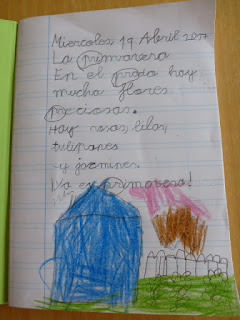 Miercoles, 19 Abril 2017
La primavera
En el prado hay
mucha flores
preciosas.
Hay rosas, lilas,
tulipanes
y jazmines.
¡Ya es primavera!